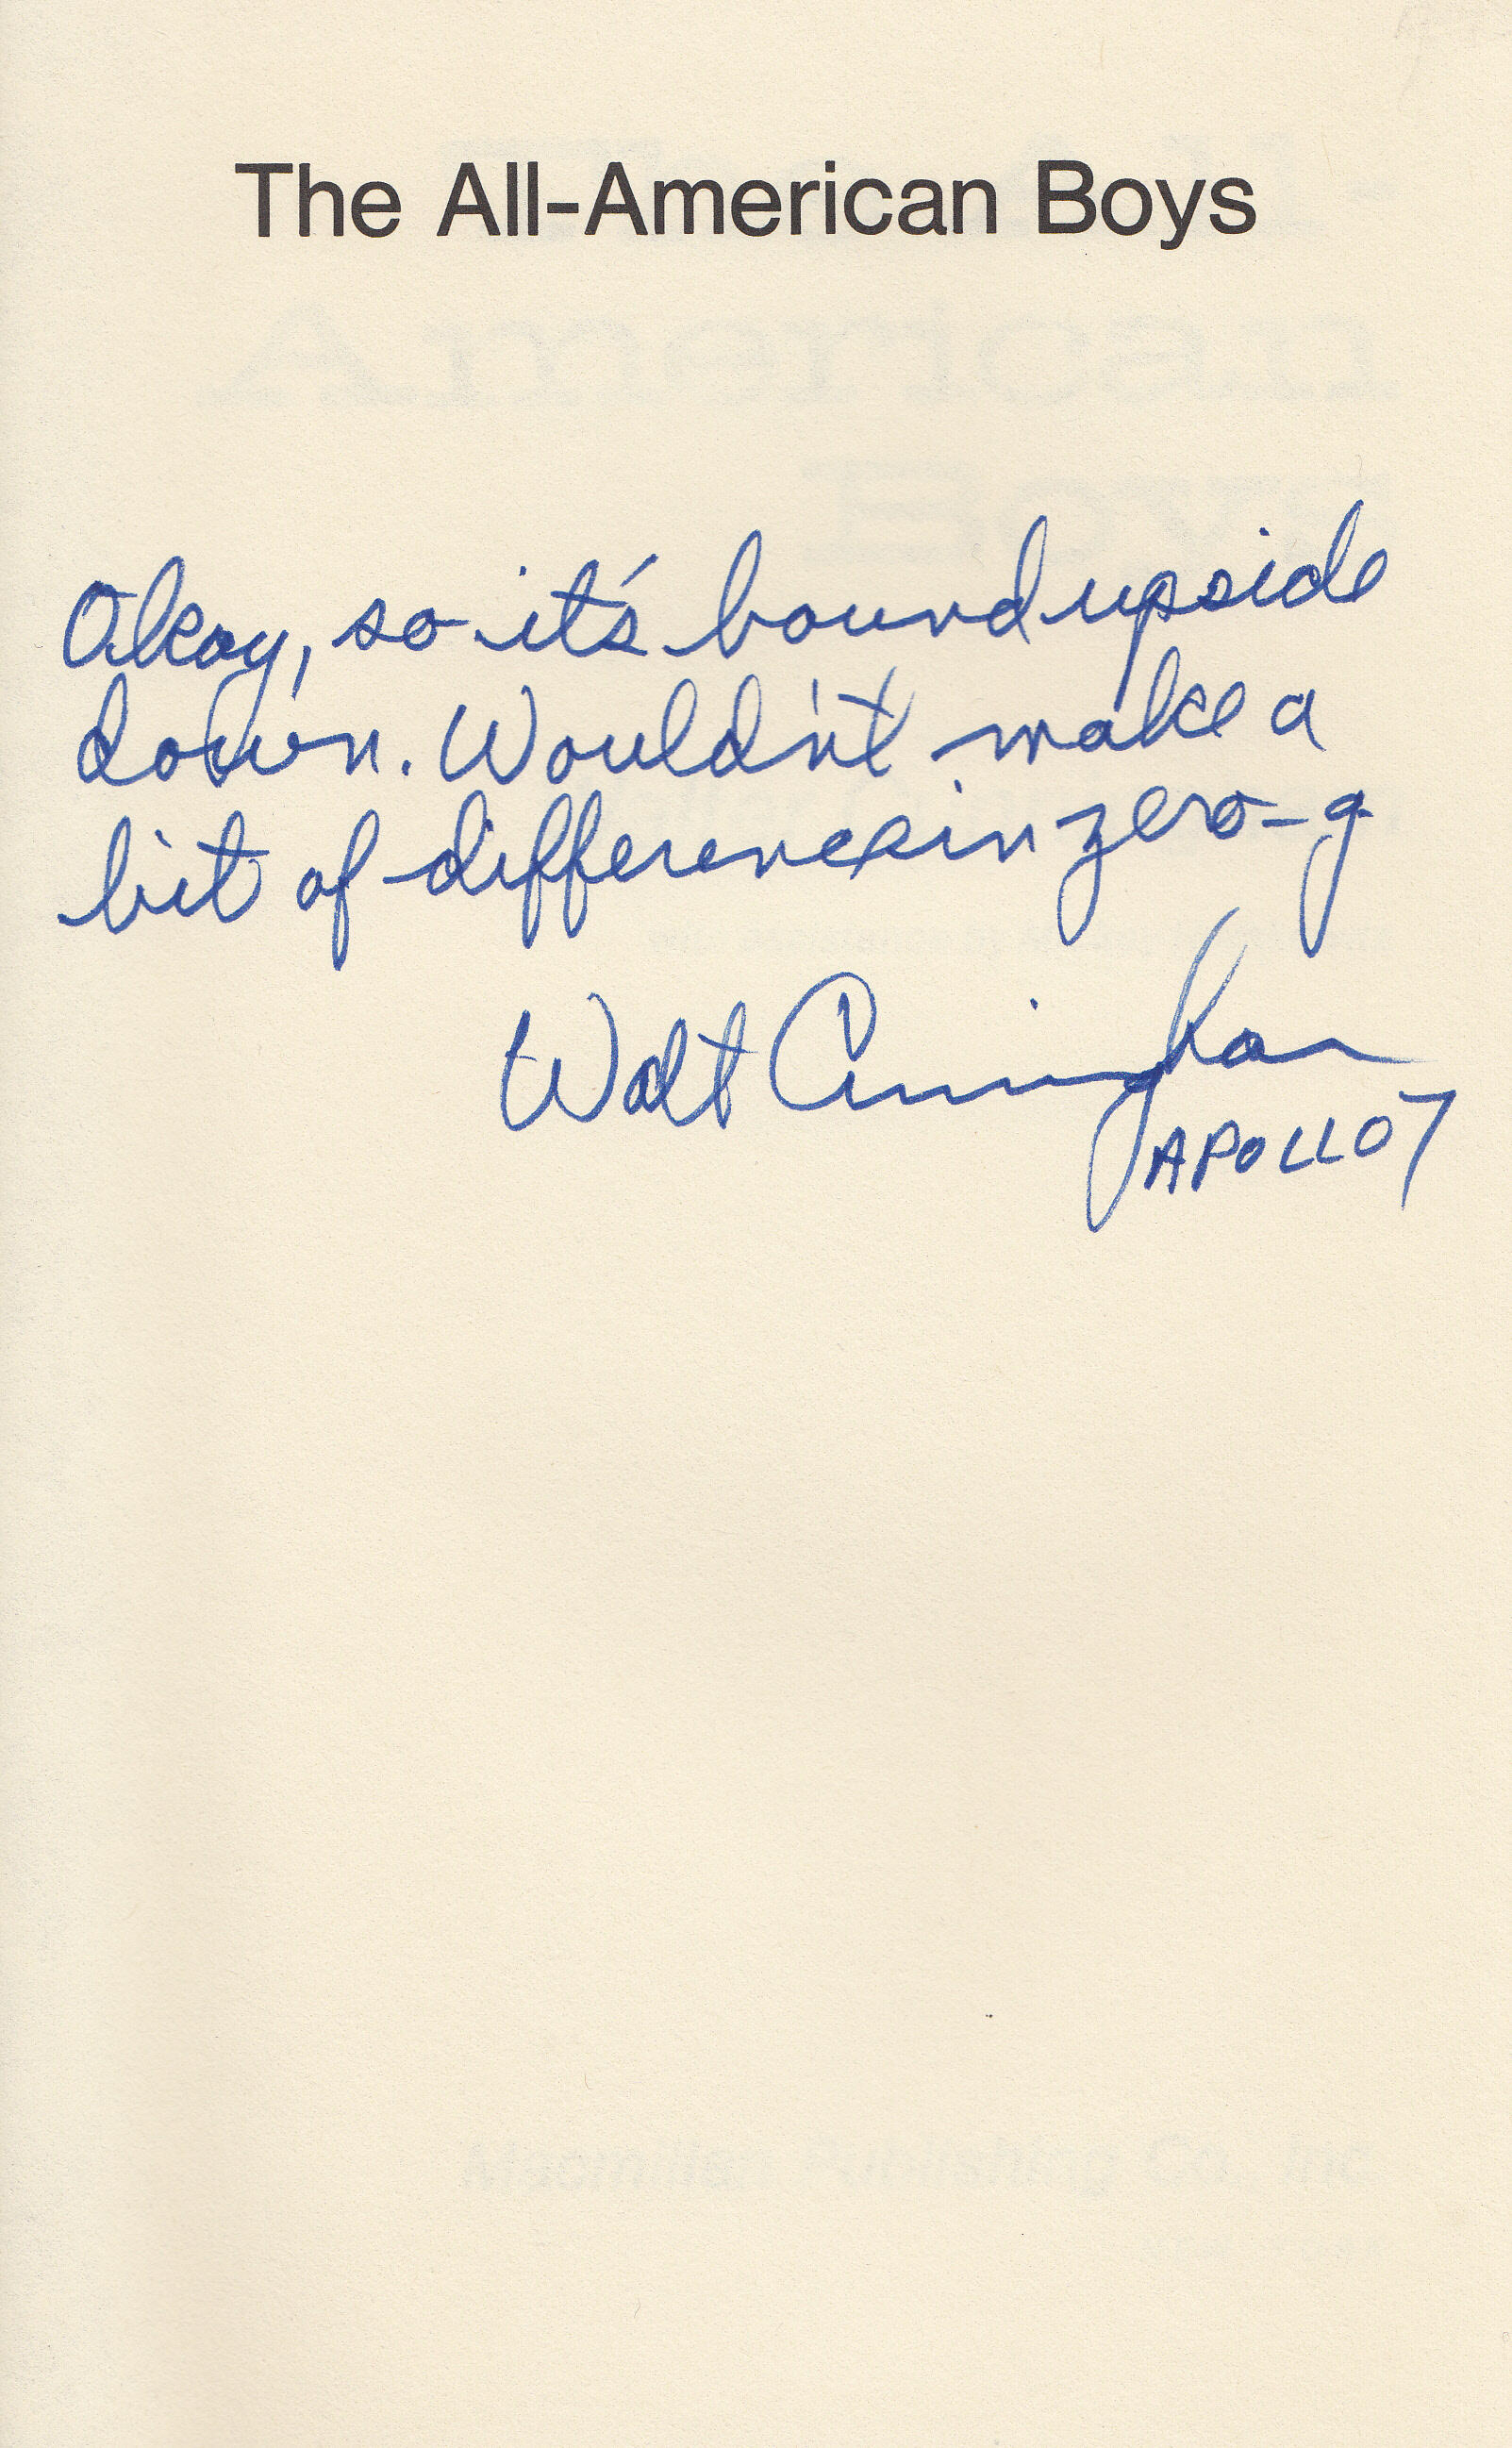 The All-American Boys
Okay, so it's bound upside
down. Wouldn't make a
bit of difference in zero-g
Walt Cunningham
APOLLO 7